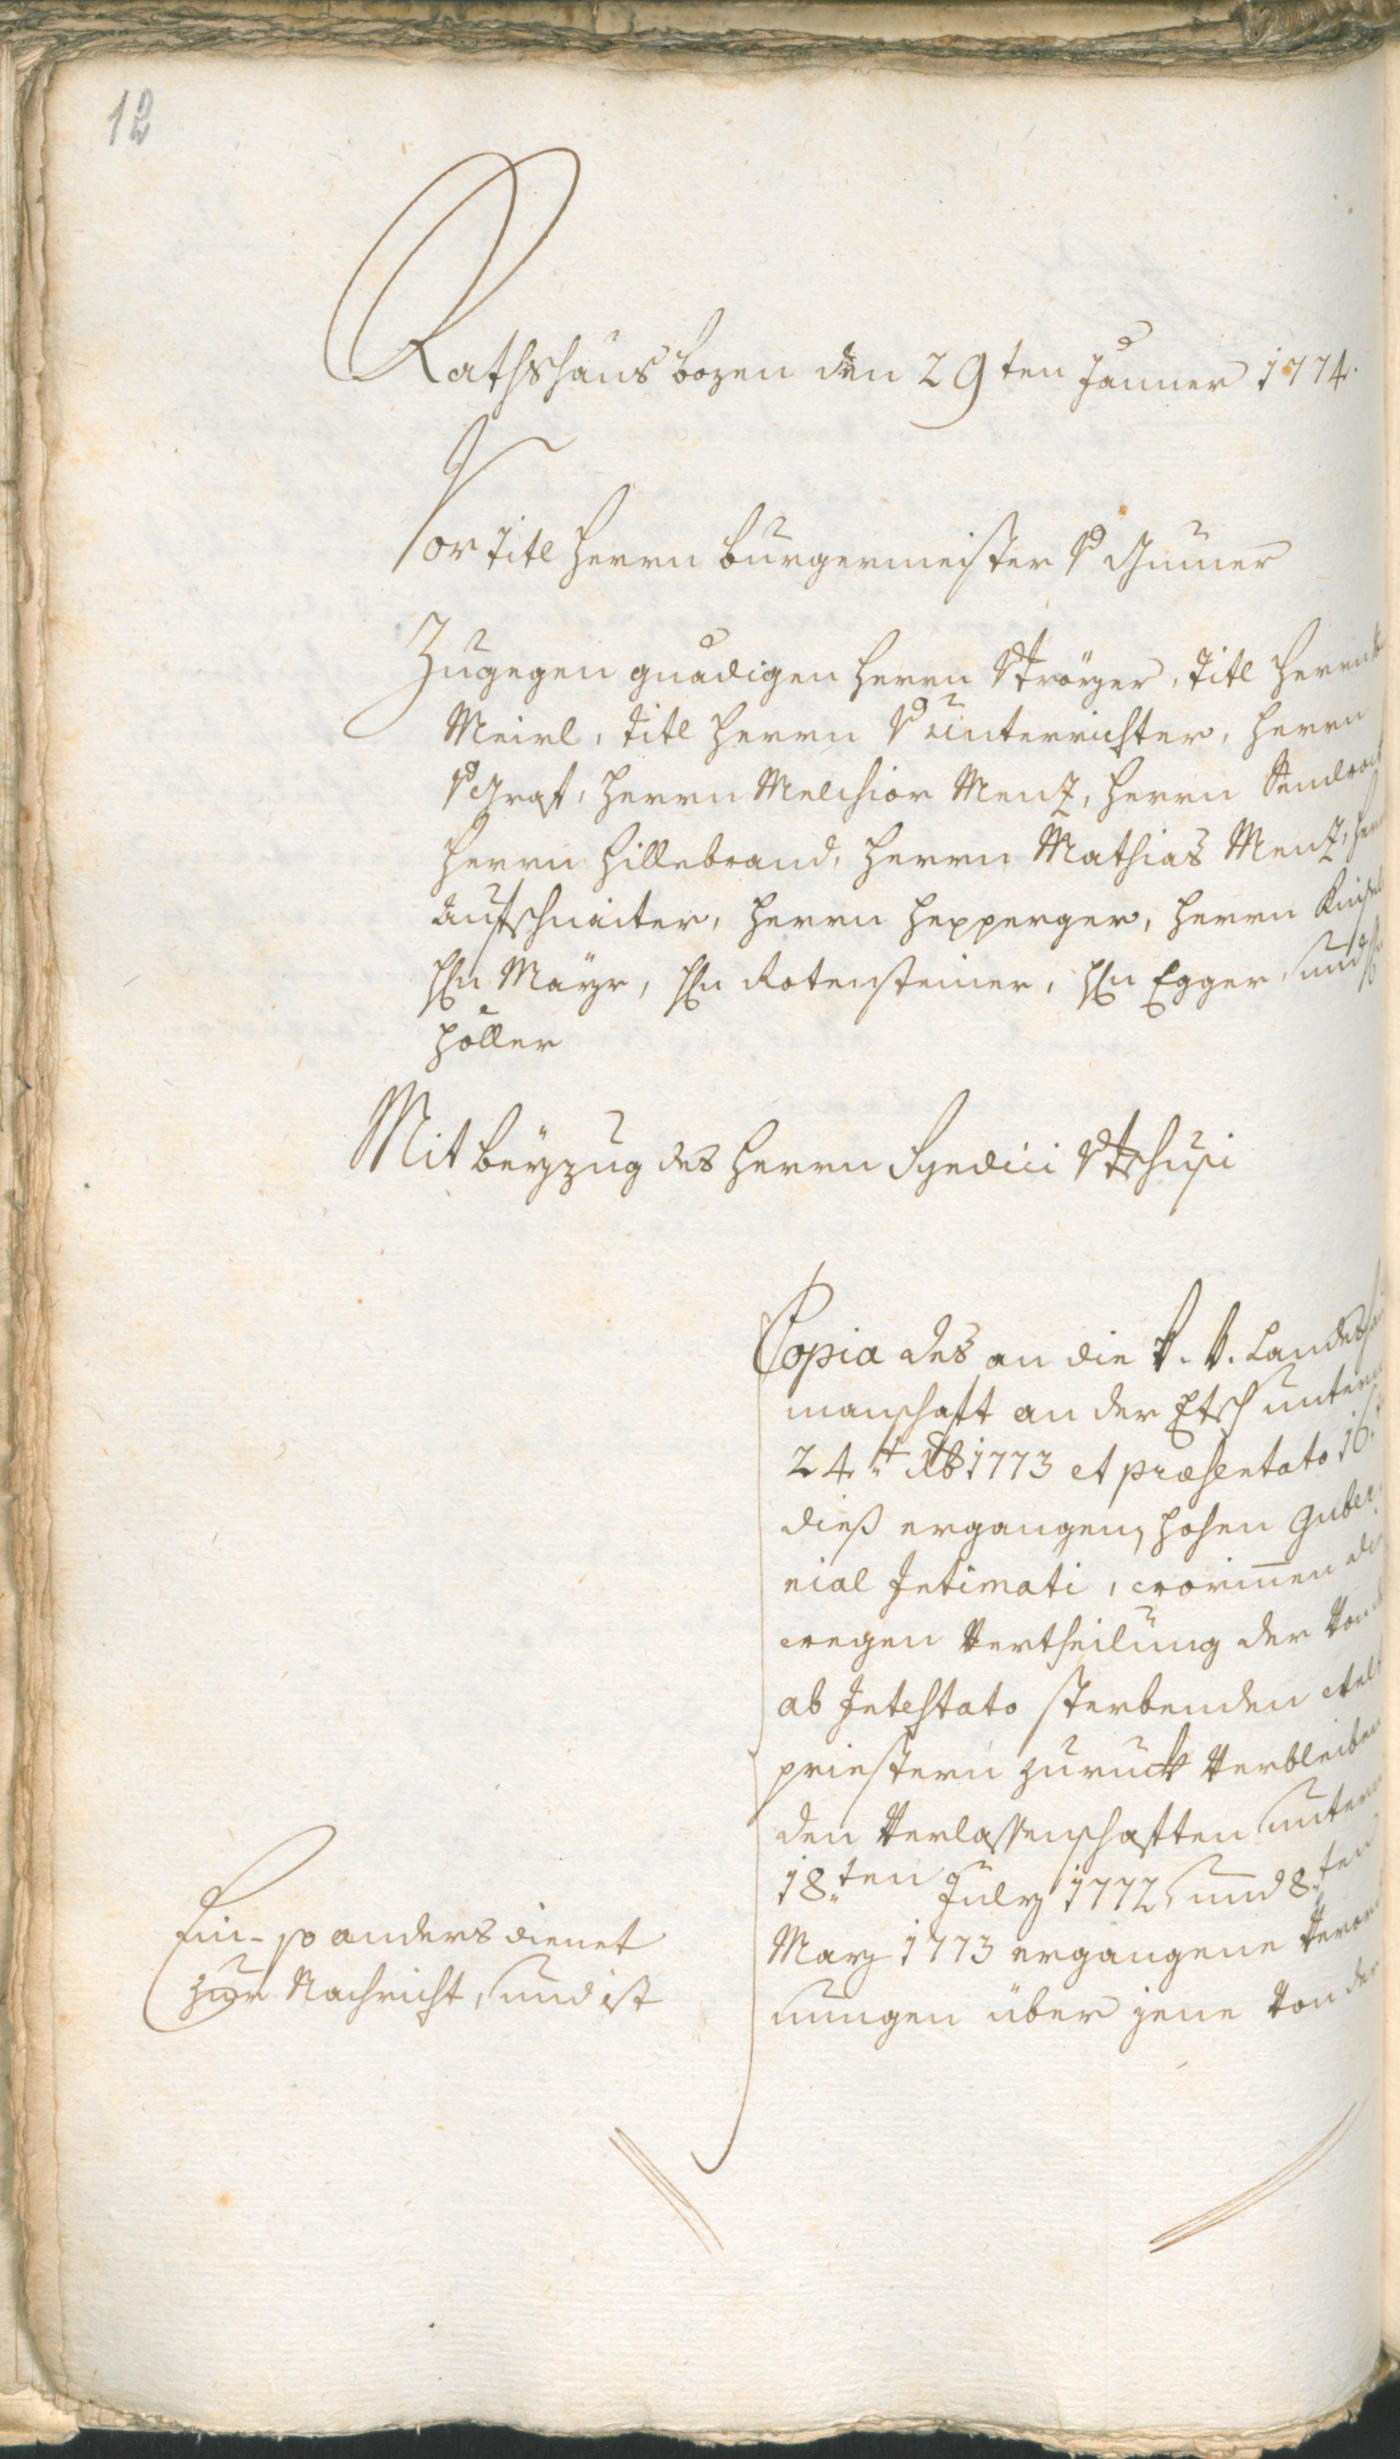 12
Rathshaus Bozen den 29ten Jänner 1774.
Vor Titl Herrn Burgermeister v Gumer
Zugegen gnädigen Herrn v Tröyer, Titl Herrn
Meirl, Titl Herrn v Unterrichter, Herrn
v Graf, Herrn Melchior Menz, Herrn
Herrn Hillebrand, Herrn Mathias Menz,
Aufschnaiter, Herrn Hepperger, Herrn
Hln Mayr, Hln Rotensteiner, Hln Egger, und
Höller
Mit Beyzug des Herrn Syndici v Tschusi
Copia des an die k. k. Landesha
manschaft an der Etsch untern
24.t Xb 1773 et præsentato 16.
dieß ergangen, hohen Guber,
nial Intimati, worinnen
wegen Vertheilung der von
ab Intestato sterbenden Welt
priestern zuruck verbleiben
den Verlassenschafften untern
18.ten July 1772, und 8.ten
Marz 1773 ergangene Veror
nungen über jene von der
Ein- so anders dienet
zur Nachricht, und ist